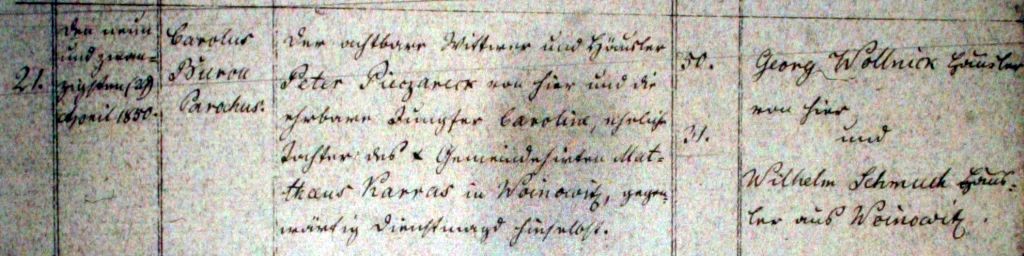 21.
den neun
und zwan-
zigsten
April 1850.
Carolus
Buron
Parochus.
Der achtbare Wittwer und Häusler
Peter Pieczarek von hier und die
ehrbare Jungfer Carolina, eheliche
Tochter des Gemeindehirten Mat-
thaeus Karras in Woinowitz, gegen-
wärtig Dienstmagd hieselbst.
50.
31.
Georg Wollnick Häusler
von hier,
und
Wilhelm Schmuck Häus-
ler aus Woinowitz.